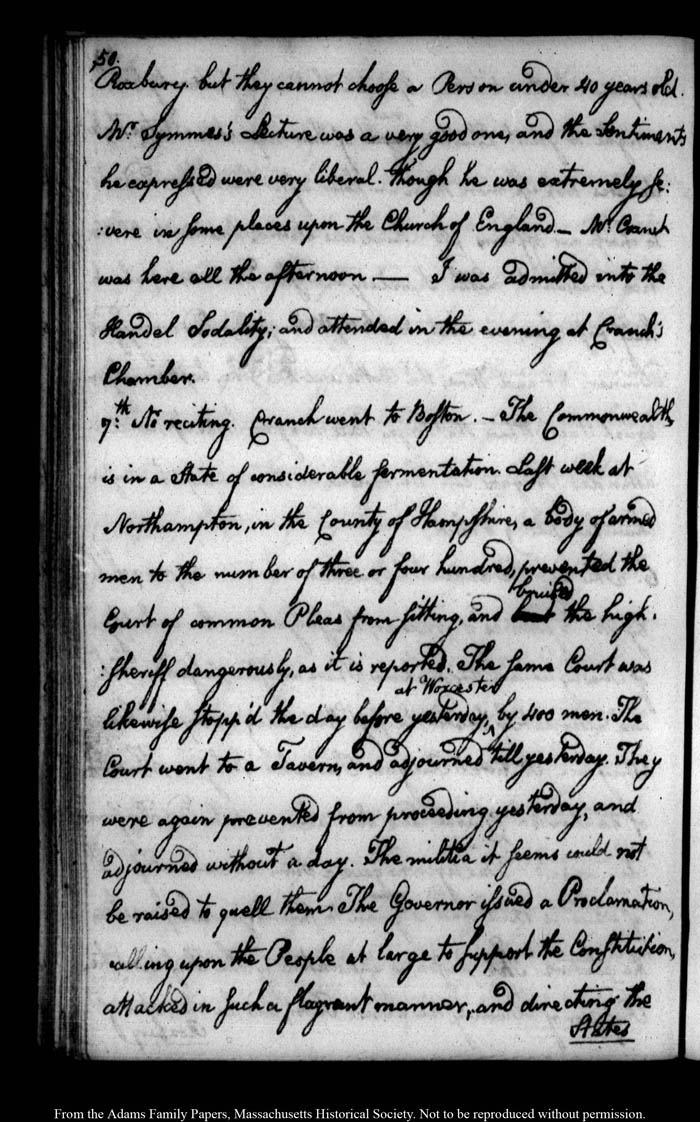 50.
Roxbury. but they cannot choose a Person under 40 years old.
Mr. Symmes's Lecture was a very good one, and the Sentiments
he expressed were very liberal. though he was extremely se:
:vere in some places upon the Church of England — Mr. Cranch
was here all the afternoon — I was admitted into the
Handel Sodality; and attended in the evening at Cranch's
Chamber.
7:th No reciting. Cranch went to Boston. — The Commonwealth,
is in a State of considerable fermentation. Last week at
Northampton, in the County of Hampshire, a body of armed
men to the number of three or four hundred, prevented the
bruised
Court of common Pleas from sitting, and the high.
:sheriff dangerously, as it is reported. The same Court was
at Worcester
likewise stopp'd the day before yesterday, ^ by 400 men. The
Court went to a Tavern, and adjourned till yesterday. They
were again prevented from proceeding yesterday, and
adjourned without a day. The militia it seems could not
be raised to quell them. The Governor issued a Proclamation,
calling upon the People at large to support the Constitution,
attacked in such a flagrant manner, and directing the
States
From the Adams Family Papers, Massachusetts Historical Society. Not to be reproduced without permission.